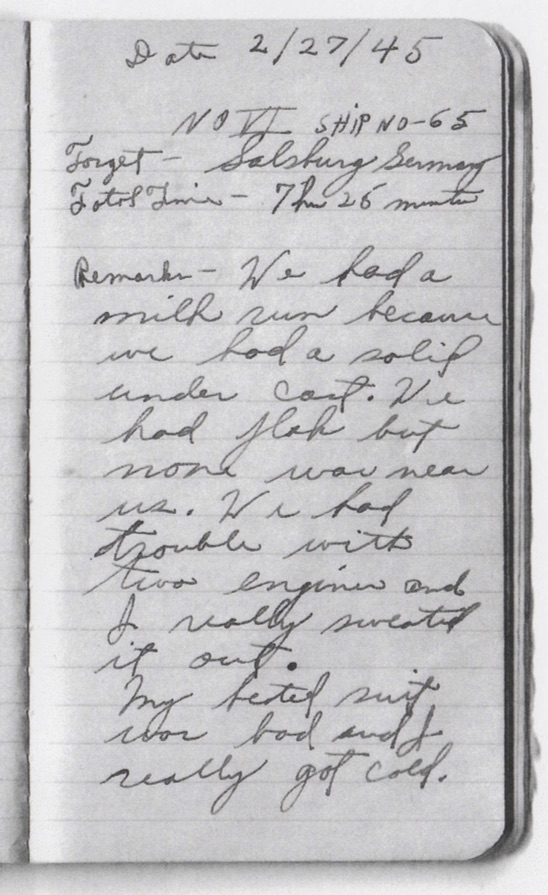 Date 2/27/45
NO VI SHIP NO-65
Target - Salsburg Germany
Total Time - 7 hr 25 minutes
Remarks - We had a
milk run because
we had a solid
under cast. We
had flak but
none was near
us. We had
trouble with
two engines and
I really sweated
it out.
My heated suit
was bad and I
really got cold.